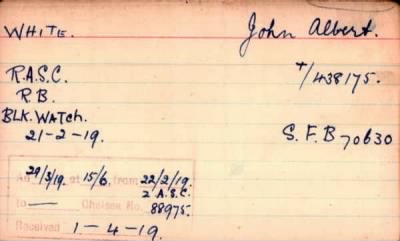 WHITE. John Albert.
R.A.S.C. T/438175.
R.B.
BLK. WATCH.
21-2-19. S.F.B 70630
Ad 29/3/19. at 15/6. from 22/2/19.
2 A.S.C.
to — Chelsea No. 88975.
Received 1-4-19.